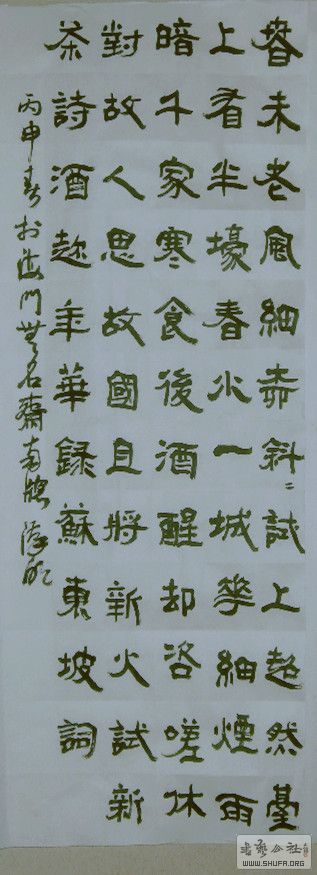 春未老風細柳斜〻試上超然臺
上看半壕春水一城花細煙雨
暗千家寒食後酒醒却咨嗟休
對故人思故國且將新火試新
茶詩酒趁年華錄蘇東坡詞
丙申春於海門無名齋南牕
書藝公社
WWW.SHUFA.ORG